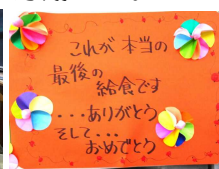 これが本当の
最後の
給食です
・・・ありがとう
そして・・・
おめでとう